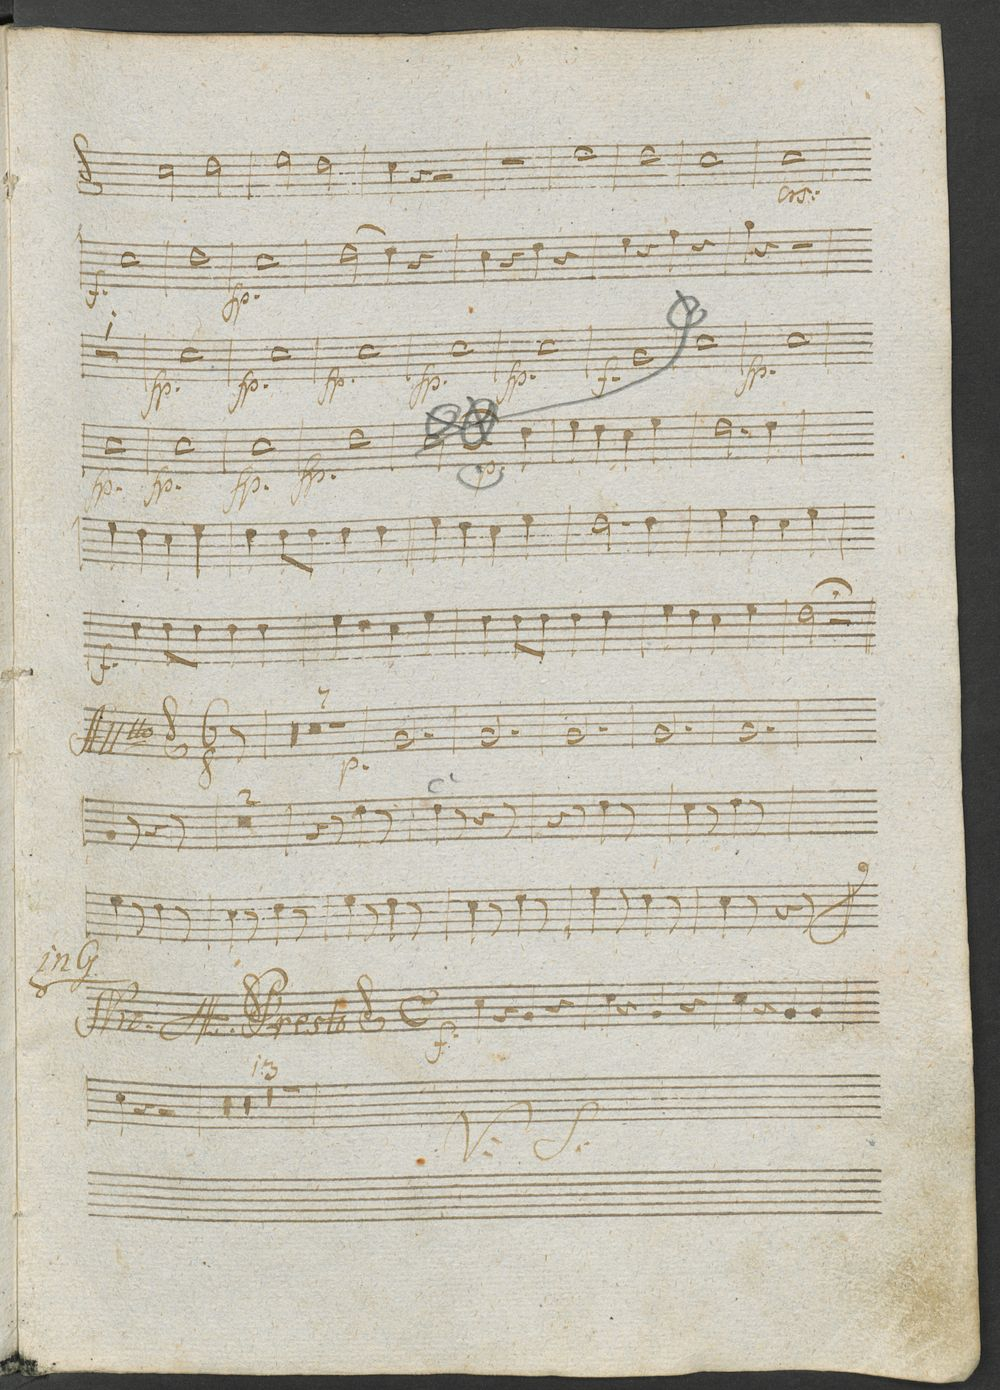 crs:
f. fp.
1
fp. fp. fp. fp. fp. f. fp.
fp. fp. fp. fp. p.
f.
All tto 6 8 7 p.
2
in G
Presto C f.
13
V: S: